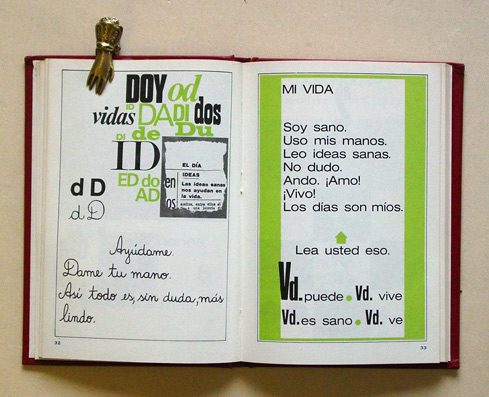 DOY od
vidas ID DA DI dos
DI de Du
ID
ED do
AD
EL DÍA
IDEAS
Las ideas sanas
nos ayudan en
la vida.
en
os
d D
d D
Ayúdame.
Dame tu mano.
Así todo es, sin duda, más
lindo.
32
MI VIDA
Soy sano.
Uso mis manos.
Leo ideas sanas.
No dudo.
Ando. ¡Amo!
¡Vivo!
Los días son míos.
Lea usted eso.
Vd. puede • Vd. vive
Vd. es sano • Vd. ve
33